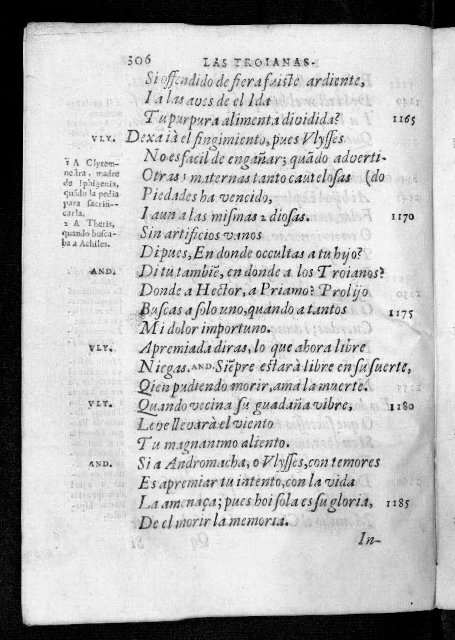 306 LAS TROIANAS.
Si offendido de fiera fuiste ardiente,
I a las aves de el Ida
Tu purpura alimenta dividida? 1165
VLY. Dexa ià el fingimiento, pues Vlysses
No es facil de engañar; quãdo adverti-
Otras 1 maternas tanto cautelosas (do
Piedades ha vencido,
I aun a las mismas 2 diosas. 1170
Sin artificios vanos
Di pues, En donde occultas a tu hijo?
AND. Di tu tambiẽ, en donde a los Troianos?
Donde a Hector, a Priamo? Prolijo
Buscas a solo uno, quando a tantos 1175
Mi dolor importuno.
VLY. Apremiada diras, lo que ahora libre
Niegas. AND. Siẽpre estarà libre en su suerte,
Qien pudiendo morir, ama la muerte.
VLY. Quando vecina su guadaña vibre, 1180
Leve llevarà el viento
Tu magnanimo aliento.
AND. Si a Andromacha, o Vlysses, con temores
Es apremiar tu intento, con la vida
La amenaça; pues hoi sola es su gloria, 1185
De el morir la memoria.
In-
1 A Clytem-
nestra, madre
de Iphigenia,
quãdo la pedia
para sacrifi-
carla.
2 A Thetis,
quando busca-
ba a Achiles.